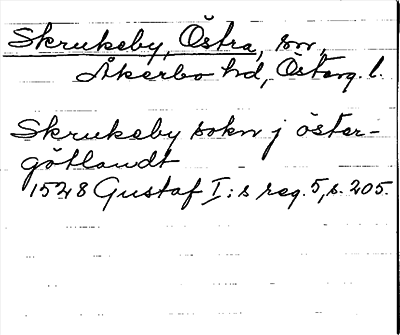 Skrukeby, Östra, sn,
Åkerbo hd, Österg. l.
Skrukeby sokn j öster-
götlandt
1528 Gustaf I:s reg. 5, s. 205.